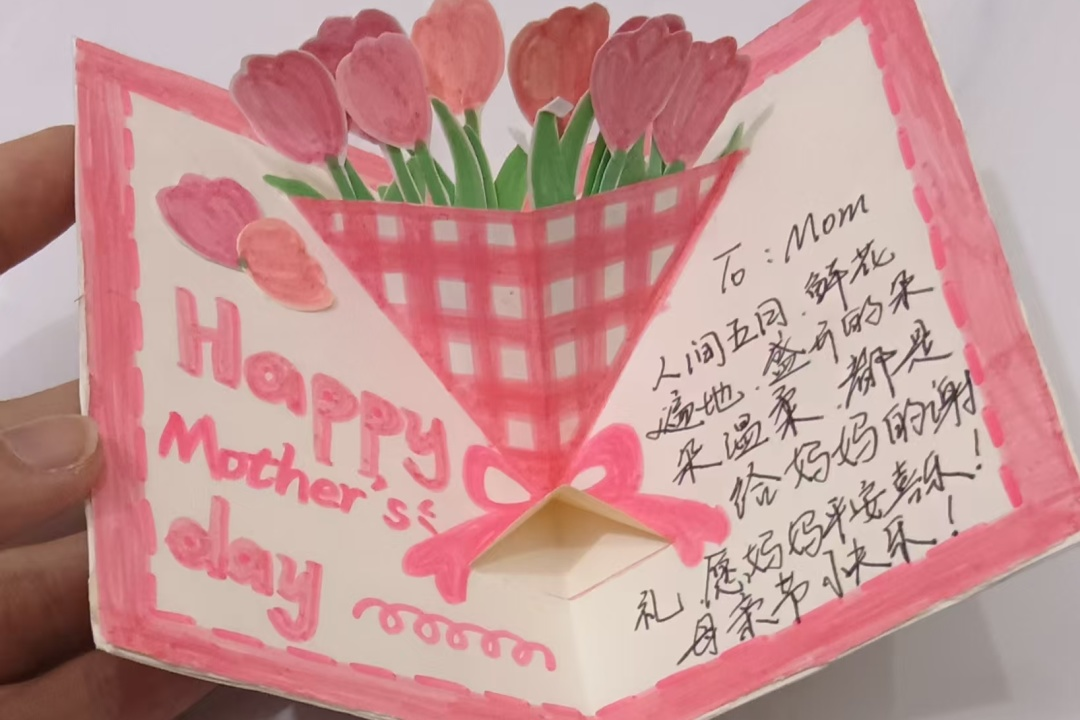 Happy
Mother's
day
To: Mom
人间五月.鲜花
遍地.盛开的朵
朵温柔.都是
给妈妈的谢
礼.愿妈妈平安喜乐!
母亲节快乐!